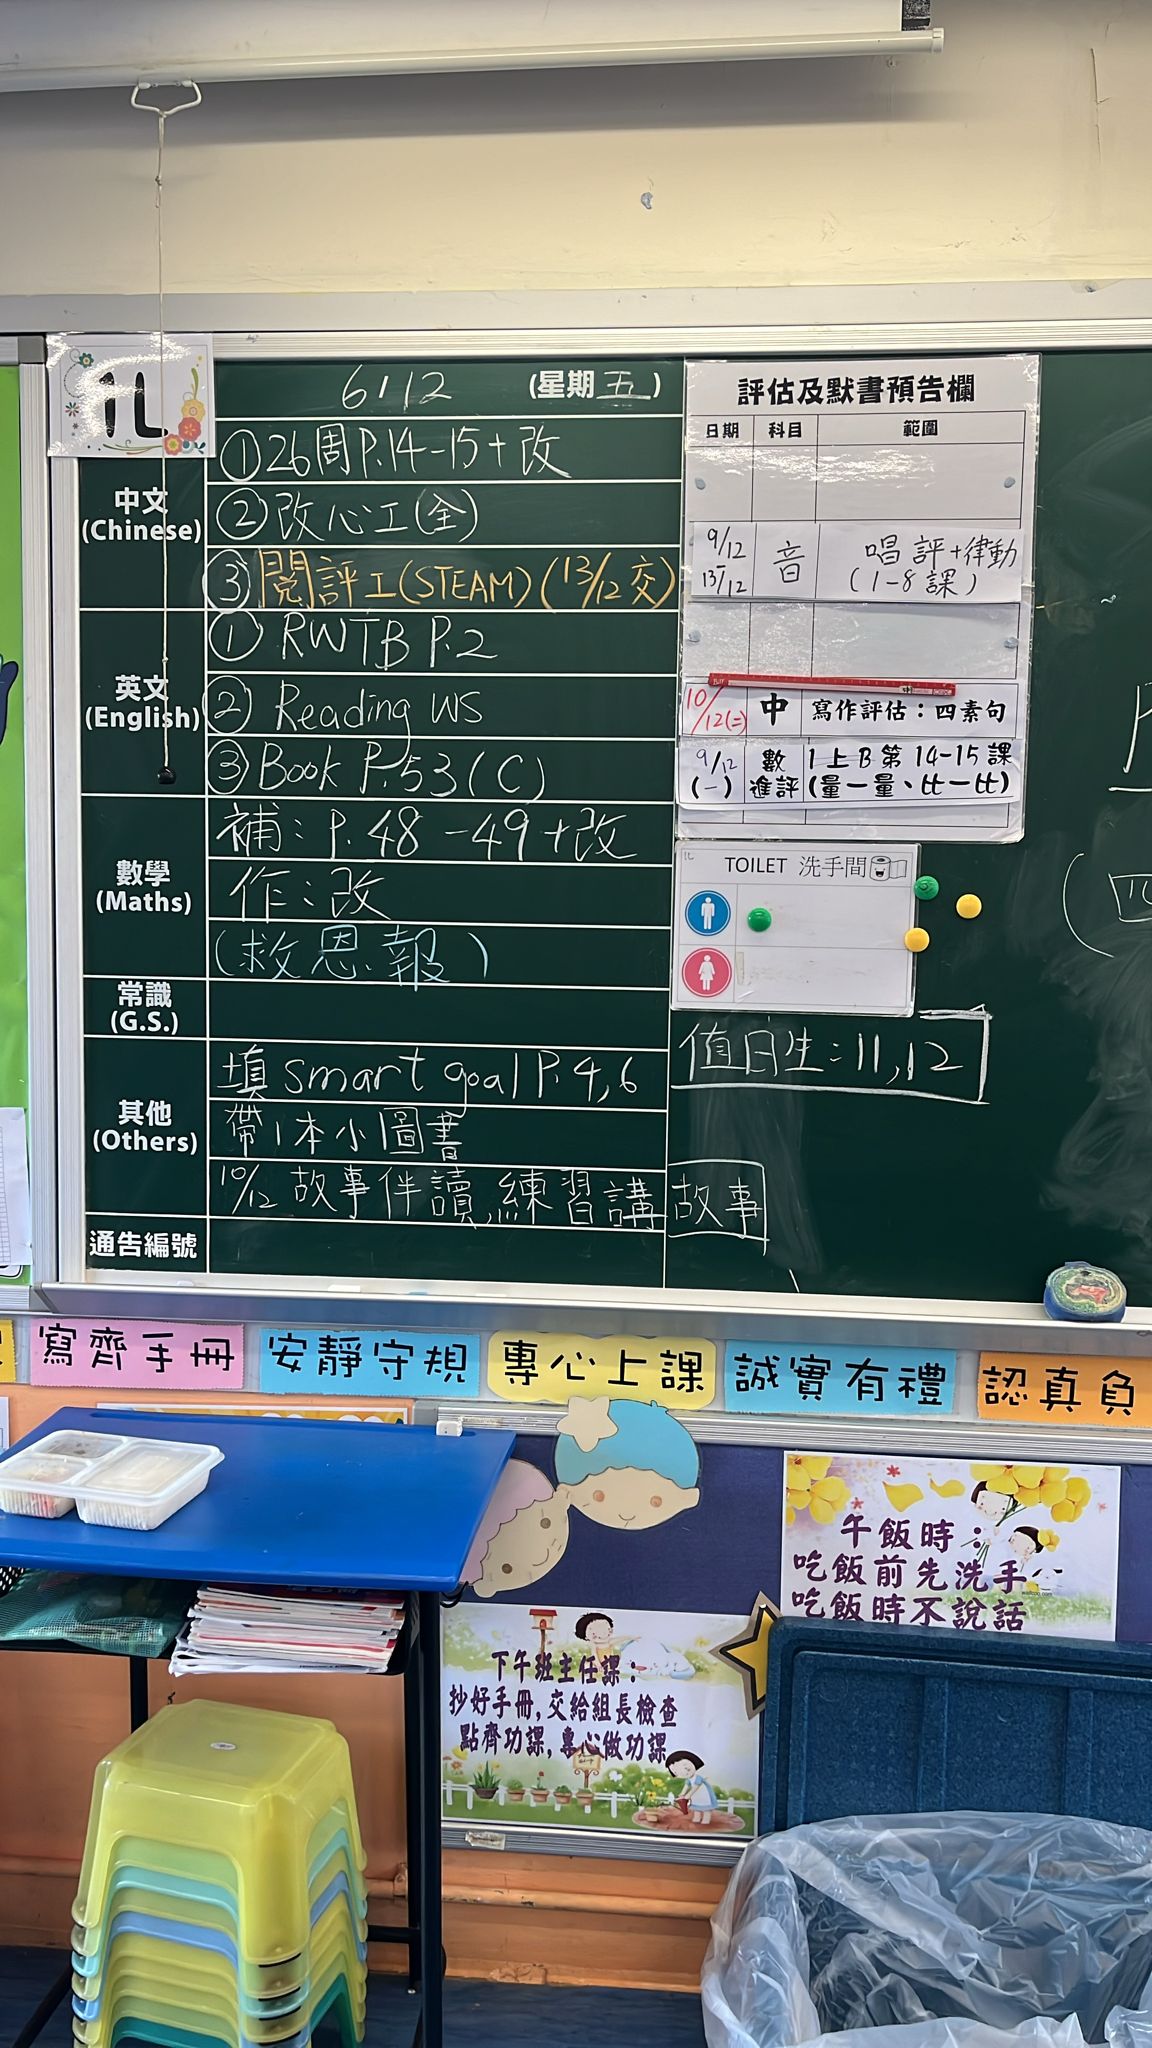 1L
6/12 (星期五)
中文
(Chinese)
①26周P.14-15+改
②改心工(全)
③閱評工(STEAM)(13/12交)
英文
(English)
①RWTB P.2
②Reading WS
③Book P.53(C)
數學
(Maths)
補：P.48-49+改
作：改
(救恩報)
常識
(G.S.)
其他
(Others)
填smart goal P.4,6
帶1本小圖書
10/12 故事伴讀,練習講故事
通告編號
評估及默書預告欄
日期 科目 範圍
9/12 13/12 音 唱評+律動(1-8課)
10/12(二) 中 寫作評估：四素句
9/12(一) 數進評 1上B第14-15課(量一量、比一比)
1L
TOILET 洗手間
值日生：11,12
寫齊手冊
安靜守規
專心上課
誠實有禮
認真負
午飯時：
吃飯前先洗手
吃飯時不說話
下午班主任課：
抄好手冊,交給組長檢查
點齊功課,專心做功課